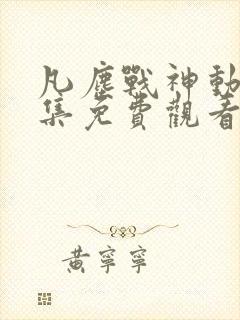 凡塵戰神動
集免費觀看
黃寧寧